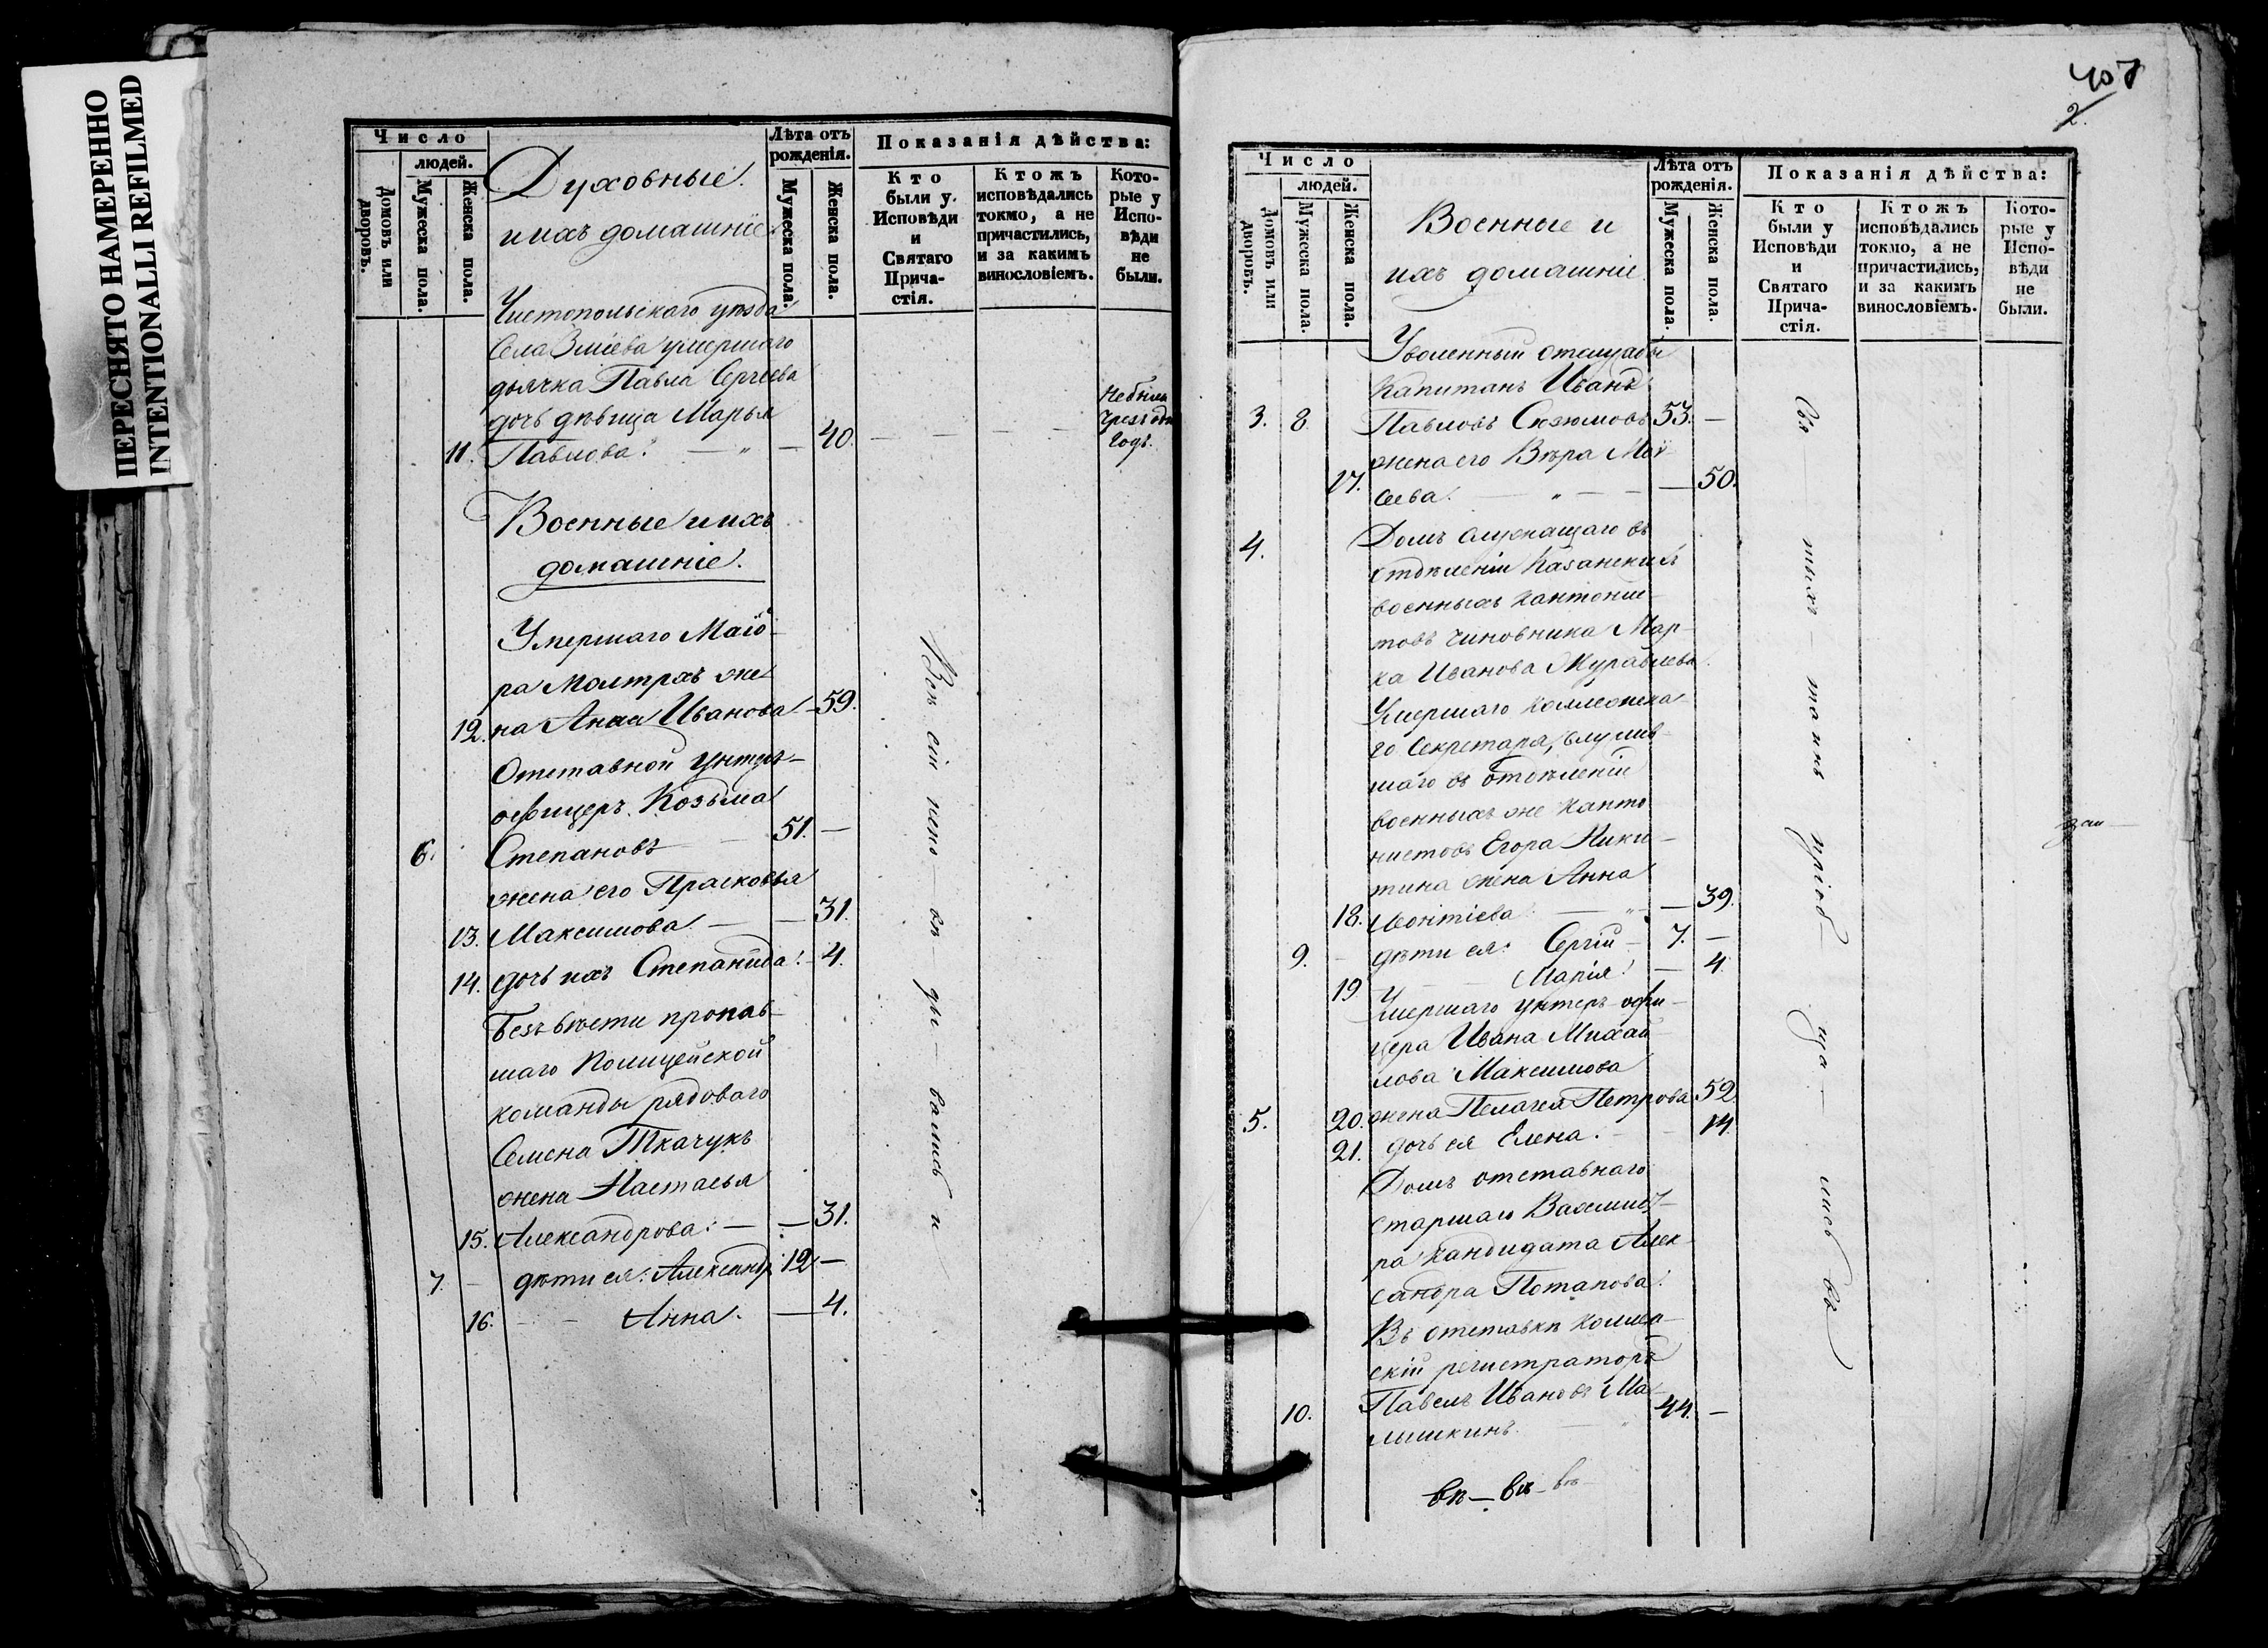 ПЕРЕСНЯТО НАМЕРЕННО
INTENTIONALLI REFILMED
Число
людей.
Домовъ или дворовъ.
Мужеска пола.
Женска пола.
Духовные
и ихъ домашніе
Лѣта отъ рожденія.
Мужеска пола.
Женска пола.
Показанія дѣйства:
Кто были у Исповѣди и Святаго Прича-стія.
Ктожъ исповѣдались токмо, а не причастились, и за какимъ винословіемъ.
Кото-рые у Испо-вѣди не были.
Чистопольскаго уѣзда
Села Зміева умершаго
дьячка Павла Сергѣева
дочь дѣвица Марья
11. Павлова. — " — 40. — — — —
Не были
Чрезъ
Годъ.
Военные и ихъ
домашніе.
Умершаго Маіо-
ра Молтрахъ же
12. на Анна Иванова — 59.
Отставной унтеръ-
офицеръ Козьма
6. Степановъ — 51. —
жена его Прасковья
13. Максимова — — 31.
14. дочь ихъ Степанида. — 4.
Безъ вѣсти пропав-
шаго Полицейской
команды рядоваго
Семена Ткачукъ
жена Настасья
15. Александрова. — — 31.
7. — дѣти ея: Александръ 12 —
16. — — Анна. — 4.
Всѣ сіи испо — вѣ — ды — вались и
407
2.
Число
людей.
Домовъ или дворовъ.
Мужеска пола.
Женска пола.
Военные и
ихъ домашніе
Лѣта отъ рожденія.
Мужеска пола.
Женска пола.
Показанія дѣйства:
Кто были у Исповѣди и Святаго Прича-стія.
Ктожъ исповѣдались токмо, а не причастились, и за какимъ винословіемъ.
Кото-рые у Испо-вѣди не были.
Уволенный отслужбы
Капитанъ Иванъ
3. 8. Павловъ 53. —
жена его Вѣра Мои
17. сеева. — " — — — 50.
4. Домъ служащаго въ
отдѣленіи Казанскихъ
военныхъ кантони-
товъ чиновника Мар-
ка Иванова Журавлева.
Умершаго Коллежска-
го Секретаря, служив-
шаго въ отдѣленіи
военныхъ же канто
нистовъ Егора Ники-
тина жена Анна
18. Леонтіева — " — 39.
9. — дѣти ея: Сергій — 7. —
19 — — Марія. — 4.
Умершаго унтеръ-офи-
цера Ивана Михай
лова Максимова
5. 20. жена Пелагея Петрова 52.
21. дочь ея Елена. — — 14.
Домъ отставнаго
старшаго Вахмист-
ра кандидата Алек-
сандра Потапова.
Въ отставкѣ Колле-
скій регистраторъ
10. Павелъ Ивановъ Ма- 44. —
лышкинъ.
Свя — тыхъ — таинъ пріоб — ща — лись